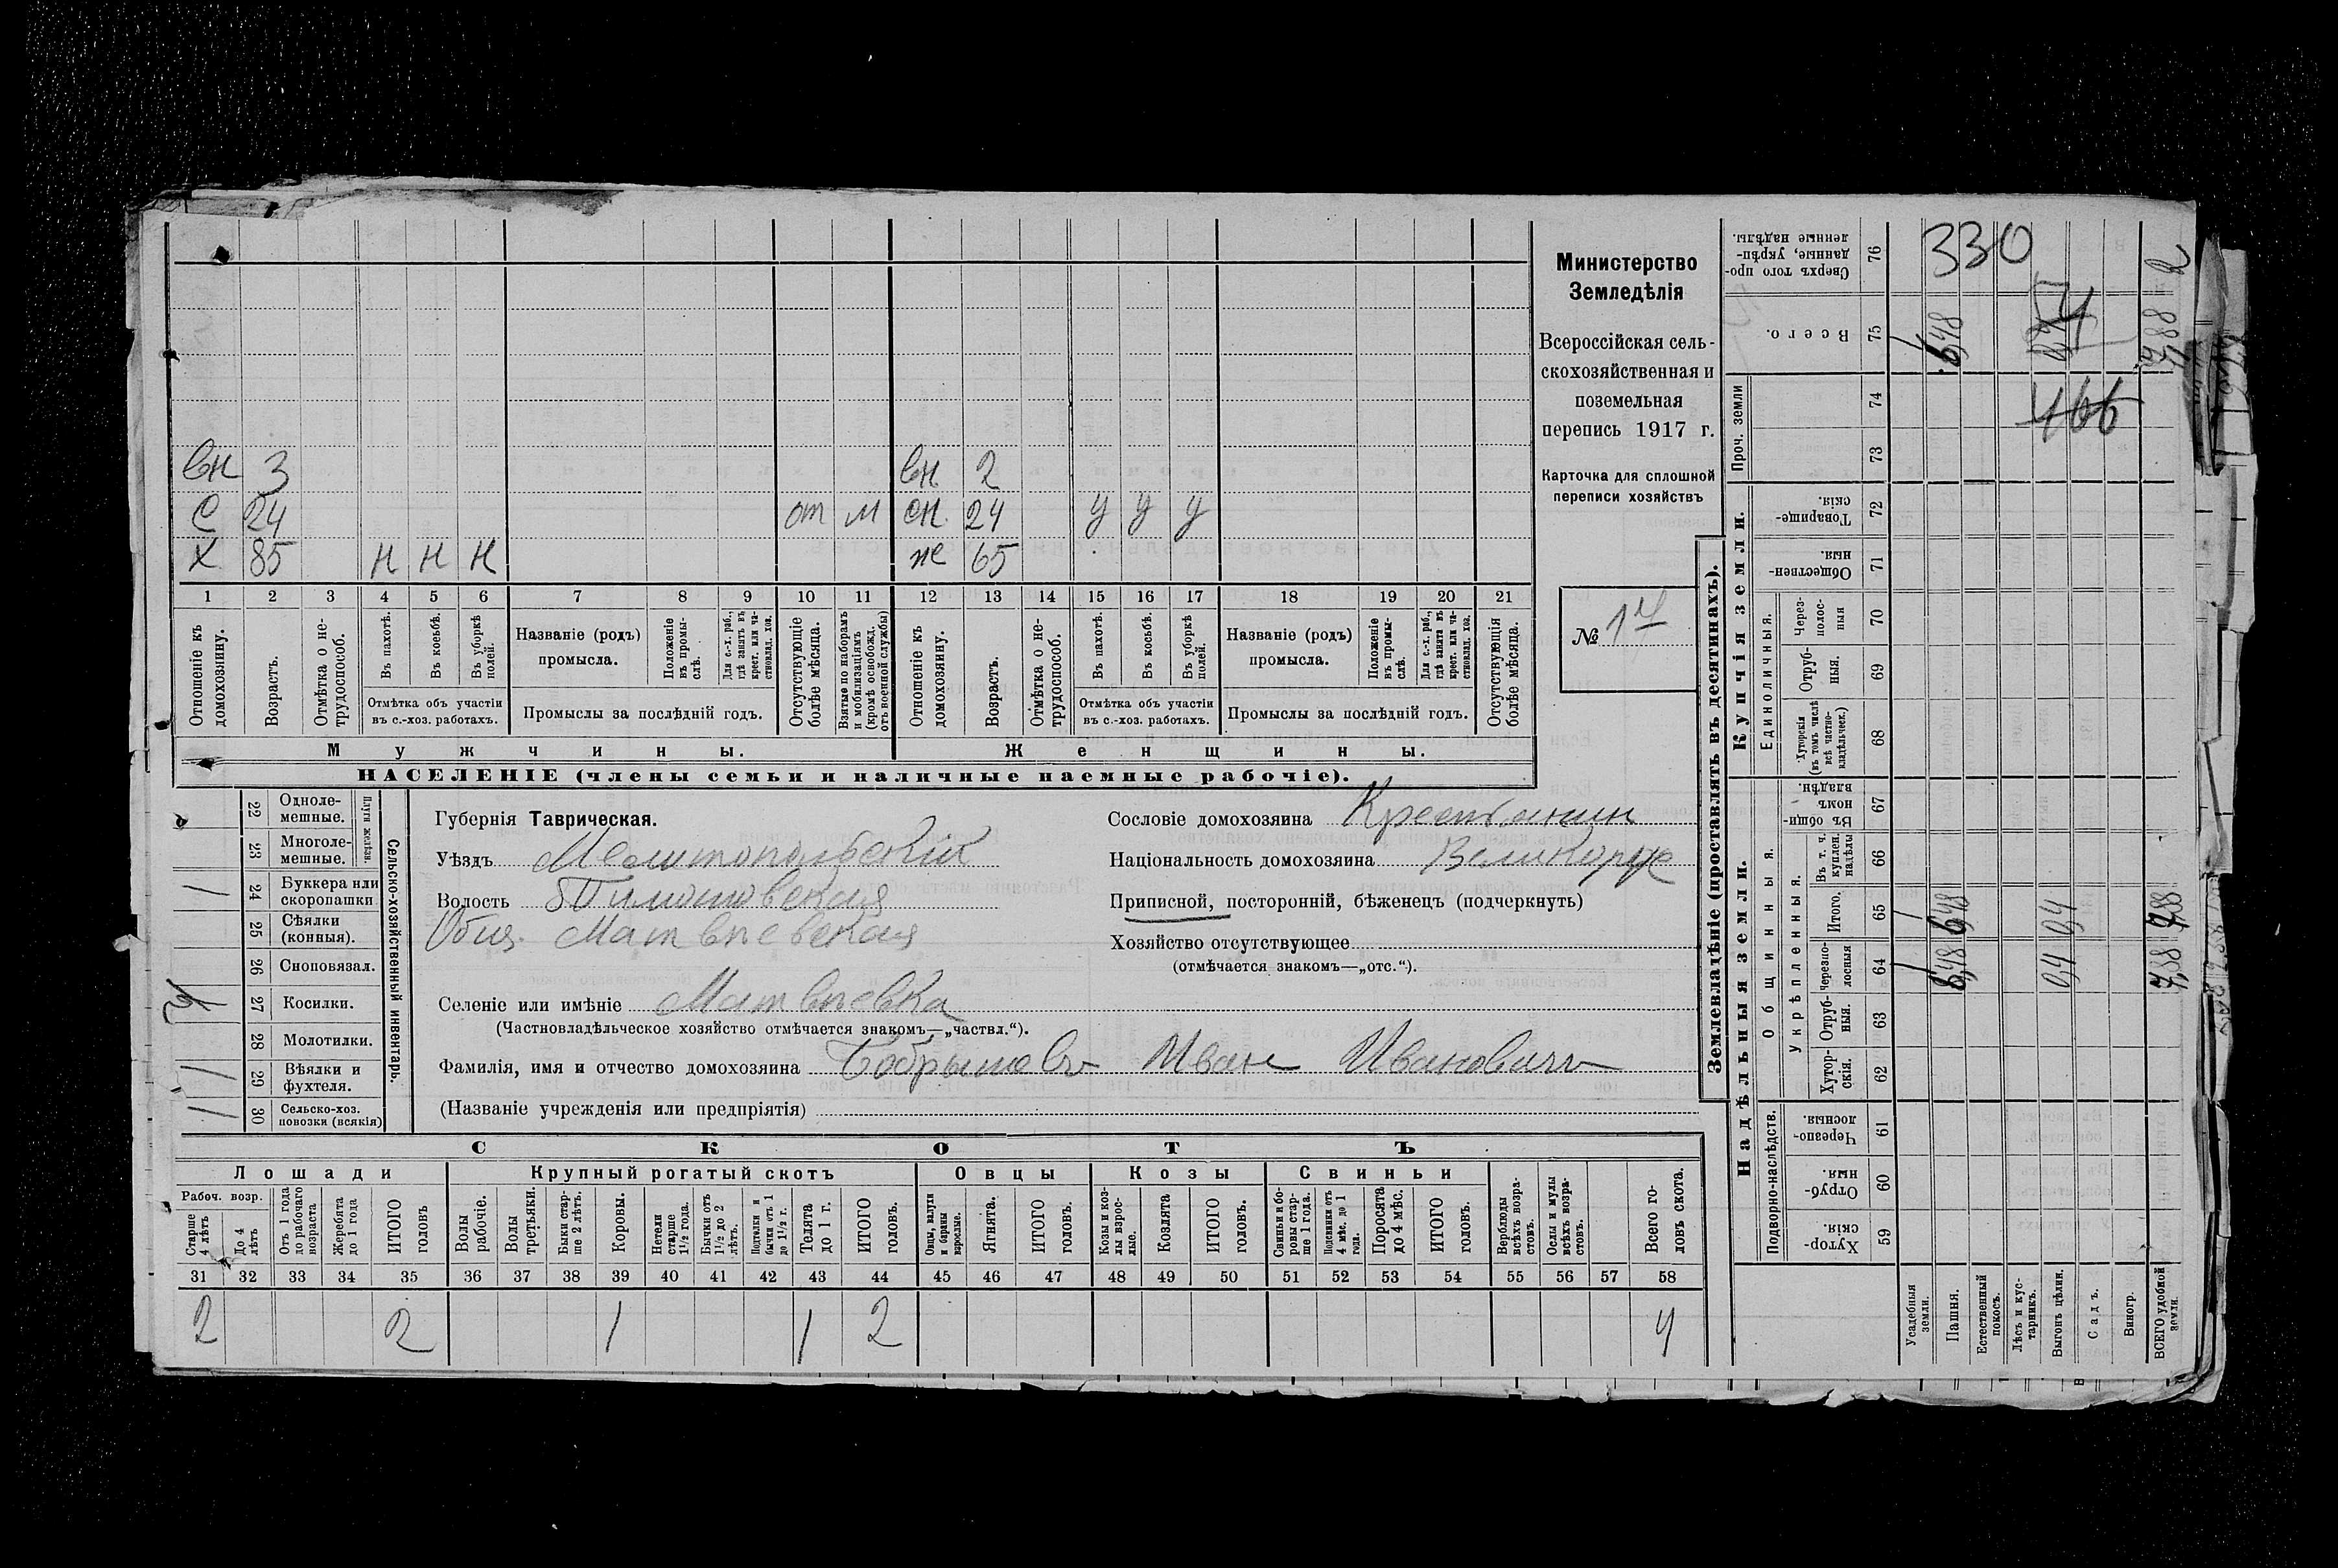 Министерство
Земледѣлія
Всероссійская сель-
скохозяйственная и
поземельная
перепись 1917 г.
Карточка для сплошной
переписи хозяйствъ
№ 17
вн 3 вн. 2
С 24 от м сн. 24 у у у
Х 85 н н н же 65
1 2 3 4 5 6 7 8 9 10 11 12 13 14 15 16 17 18 19 20 21
Отношеніе къ домохозяину.
Возрастъ.
Отмѣтка о не-трудоспособ.
Въ пахотѣ.
Въ косьбѣ.
Въ уборкѣ полей.
Отмѣтка объ участіи въ с.-хоз. работахъ.
Названіе (родъ) промысла.
Положеніе въ промы-слѣ.
Для с.-х. раб., гдѣ занятъ въ крест. или ча-стновлад. хоз.
Промыслы за послѣдній годъ.
Отсутствующіе болѣе мѣсяца.
Взятые по наборамъ и мобилизаціямъ (кромѣ освобожд. отъ военной службы)
Отношеніе къ домохозяину.
Возрастъ.
Отмѣтка о не-трудоспособ.
Въ пахотѣ.
Въ косьбѣ.
Въ уборкѣ полей.
Отмѣтка объ участіи въ с.-хоз. работахъ.
Названіе (родъ) промысла.
Положеніе въ промы-слѣ.
Для с.-х. раб., гдѣ занята въ крест. или ча-стновлад. хоз.
Промыслы за послѣдній годъ.
Отсутствующія болѣе мѣсяца.
Мужчины. Женщины.
НАСЕЛЕНІЕ (члены семьи и наличные наемные рабочіе).
Сельско-хозяйственный инвентарь.
Плуги желѣзн.
22 Одноле-мешные.
23 Многоле-мешные.
24 Буккера или скоропашки /
25 Сѣялки (конныя).
26 Сноповязал.
27 Косилки.
28 Молотилки.
29 Вѣялки и фухтеля. /
30 Сельско-хоз. повозки (всякія) /
Губернія Таврическая.
Уѣздъ Мелитопольскій
Волость Тимошовская
Общ. Матвѣевская
Селеніе или имѣніе Матвѣевка
(Частновладѣльческое хозяйство отмѣчается знакомъ—„частвл.“).
Фамилія, имя и отчество домохозяина Бобрышовъ Иван Ивановичъ
(Названіе учрежденія или предпріятія)
Сословіе домохозяина Крестьянин
Національность домохозяина Великорус
Приписной, посторонній, бѣженецъ (подчеркнуть)
Хозяйство отсутствующее
(отмѣчается знакомъ—„отс.“).
СКОТЪ
Лошади Крупный рогатый скотъ Овцы Козы Свиньи
Рабоч. возр.
Старше 4 лѣтъ
До 4 лѣтъ
Отъ 1 года до рабочаго возраста
Жеребята до 1 года
ИТОГО головъ
Волы рабочіе.
Волы третьяки.
Быки стар-ше 2 лѣтъ.
Коровы.
Нетели старше 1½ года.
Бычки отъ 1½ до 2 лѣтъ.
Подтелки и бычки отъ 1 до 1½ г.
Телята до 1 г.
ИТОГО головъ.
Овцы, валухи и бараны взрослые.
Ягнята.
ИТОГО головъ.
Козы и коз-лы взрос-лые.
Козлята
ИТОГО головъ.
Свиньи и бо-ровы стар-ше 1 года.
Подсвинки отъ 4 мѣс. до 1 года.
Поросята до 4 мѣс.
ИТОГО головъ.
Верблюды всѣхъ возра-стовъ.
Ослы и мулы всѣхъ возра-стовъ.
Всего го-ловъ скота.
31 32 33 34 35 36 37 38 39 40 41 42 43 44 45 46 47 48 49 50 51 52 53 54 55 56 57 58
2 2 1 1 2 4
Землевладѣніе (проставлять въ десятинахъ).
Надѣльныя земли. Купчія земли. Проч. земли
Подворно-наслѣдств.
Общинныя.
Укрѣпленныя.
Единоличныя.
59 Хутор-скія.
60 Отруб-ныя.
61 Черезпо-лосныя.
62 Хутор-скія.
63 Отруб-ныя.
64 Черезпо-лосныя
65 Итого.
66 Въ т. ч. куплен. надѣлы
67 Въ общин-номъ владѣн.
68 Хуторскія (въ томъ числѣ всѣ частно-владѣльческ.)
69 Отруб-ныя.
70 Через-полос-ныя
71 Обществен-ныя.
72 Товарище-скія.
73
74
75 Всего.
76 Сверхъ того про-данные, укрѣп-ленные надѣлы.
Усадебныя земли.
Пашня. 6,48 6,48 6,48
Естественный покосъ.
Лѣсъ и кус-тарникъ.
Выгонъ цѣлин. 0,4 0,4
Садъ.
Виногр.
ВСЕГО удобной земли.
330
466